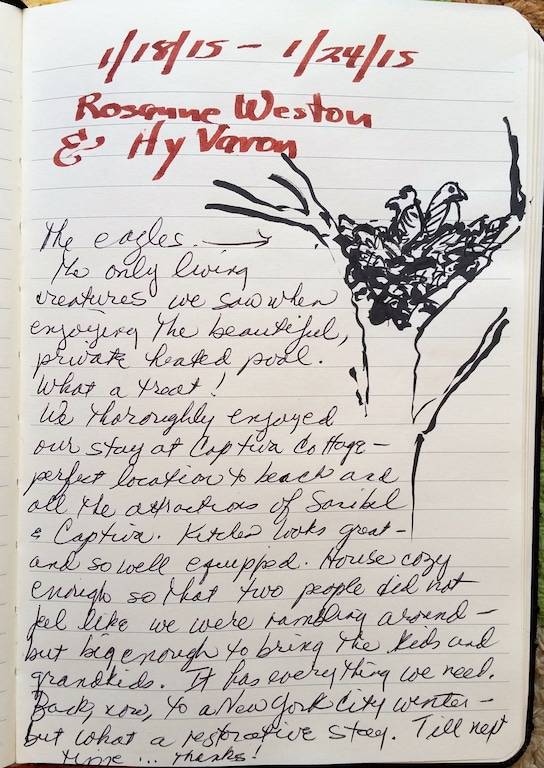 1/18/15 - 1/24/15
Rosanne Weston
& Hy Varon
The eagles. →
The only living
creatures we saw when
enjoying the beautiful,
private heated pool.
What a treat!
We thoroughly enjoyed
our stay at Captiva Cottage -
perfect location to beach and
all the attractions of Sanibel
& Captiva. Kitchen looks great -
and so well equipped. House cozy
enough so that two people did not
feel like we were rambling around -
but big enough to bring the kids and
grandkids. It has everything we need.
Back, now, to a New York City winter -
but what a restorative stay. Till next
time... Thanks!